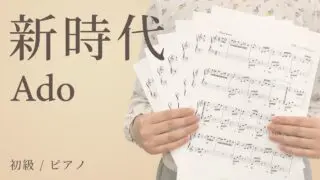 新時代
Ado
初級 / ピアノ